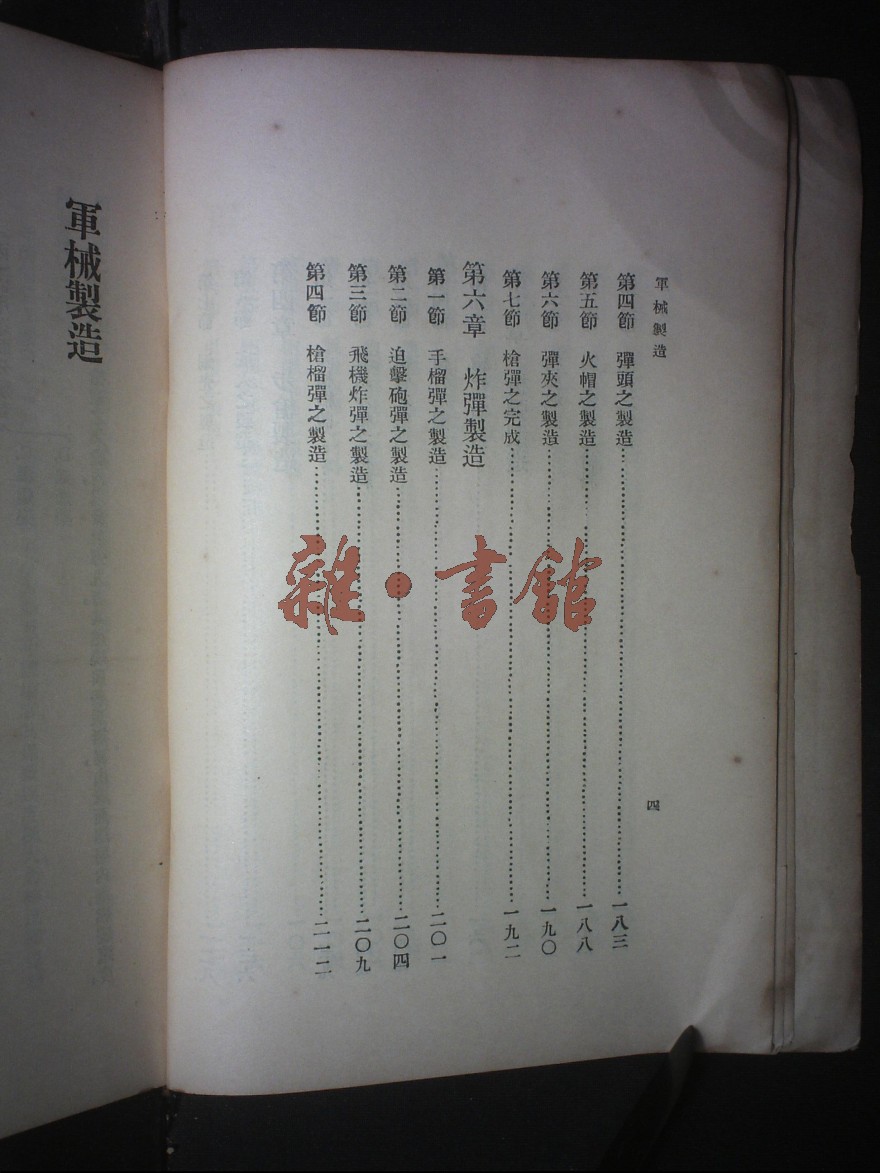 軍械製造
第四節 彈頭之製造……一八三
第五節 火帽之製造……一八八
第六節 彈夾之製造……一九〇
第七節 槍彈之完成……一九二
第六章 炸彈製造
第一節 手榴彈之製造……二〇一
第二節 迫擊砲彈之製造……二〇四
第三節 飛機炸彈之製造……二〇九
第四節 槍榴彈之製造……二一二
四
軍械製造
雜·書館